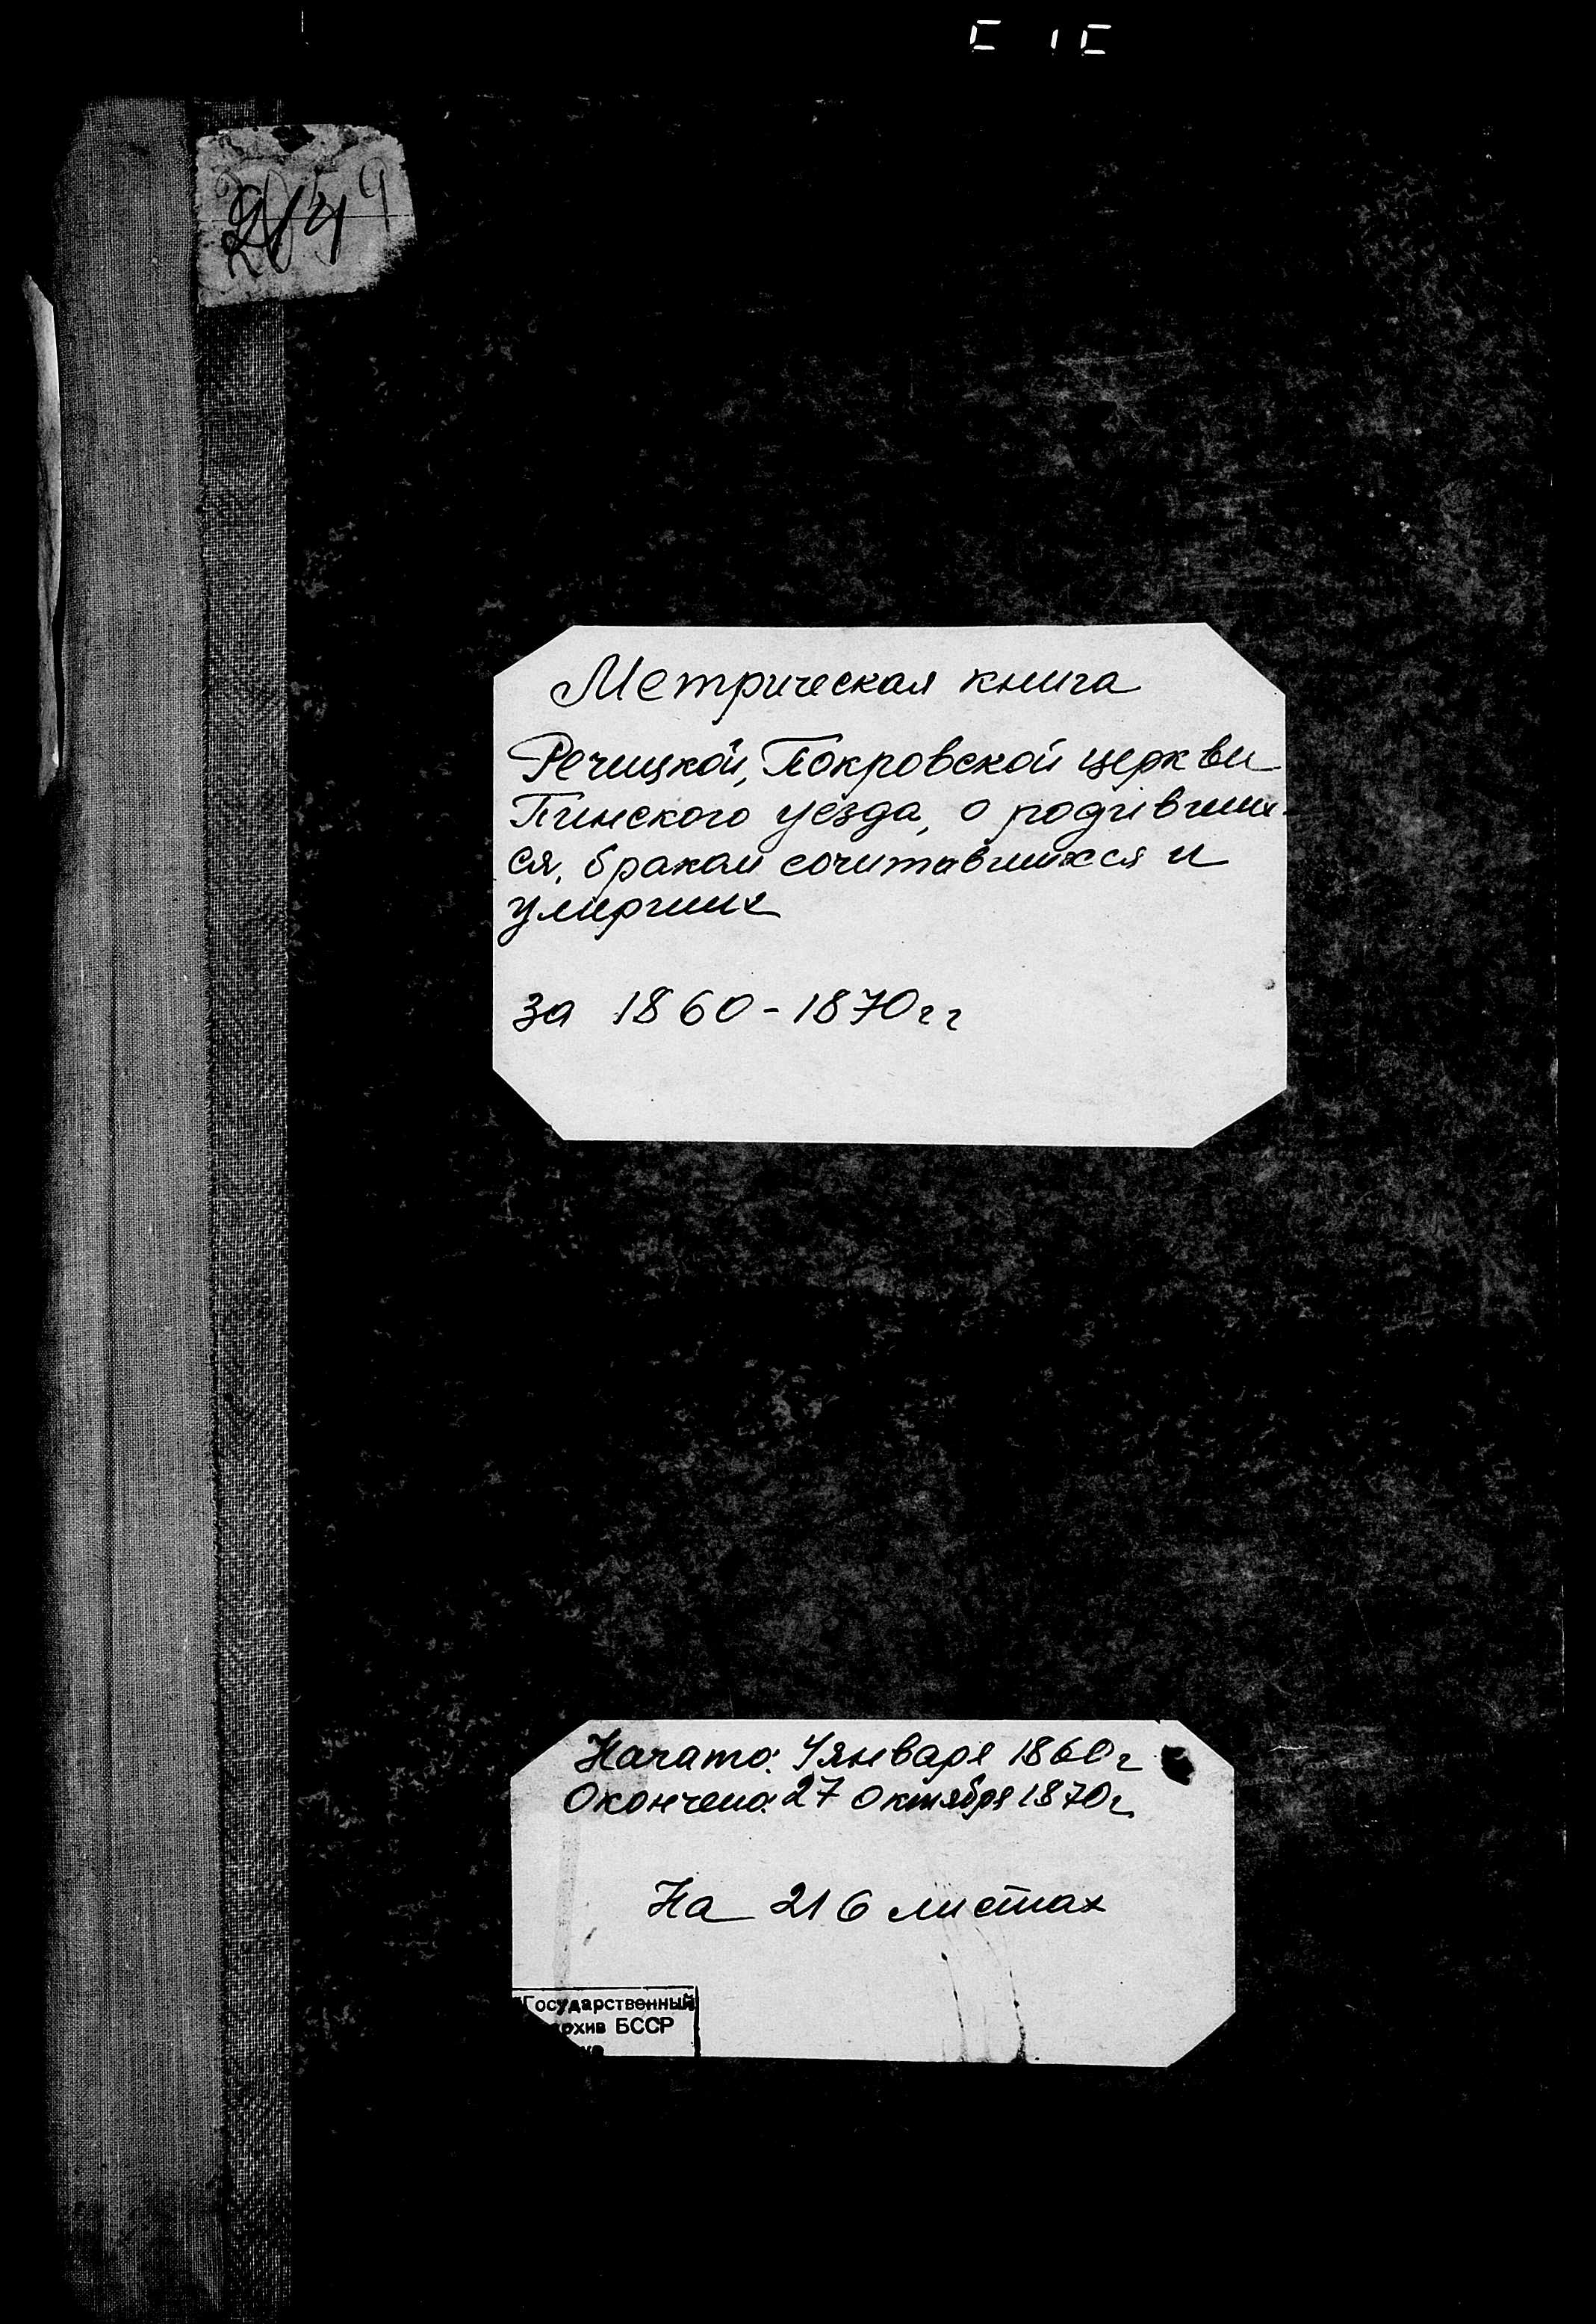 Метрическая книга
Речицкой, Покровской церкви
Пинского уезда, о родивших-
ся, браком сочитавшихся и
умерших
за 1860-1870 гг
Начато: 4 января 1860 г
Окончено: 27 октября 1870 г
На 216 листах
Государственный
рхив БССР